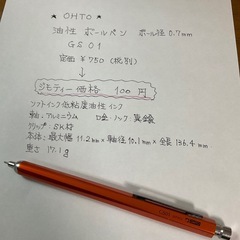 ★ OHTO ★
油性 ボールペン ボール径 0.7mm
GS01
定価 ¥750 (税別)
↓
ジモティー価格 100円
ソフトインク低粘度油性インク
軸:アルミニウム 口金 ノック 真鍮
グリップ:SK材
本体:最大幅 11.2mm×軸径 10.1mm×全長 136.4mm
重さ 17.1g